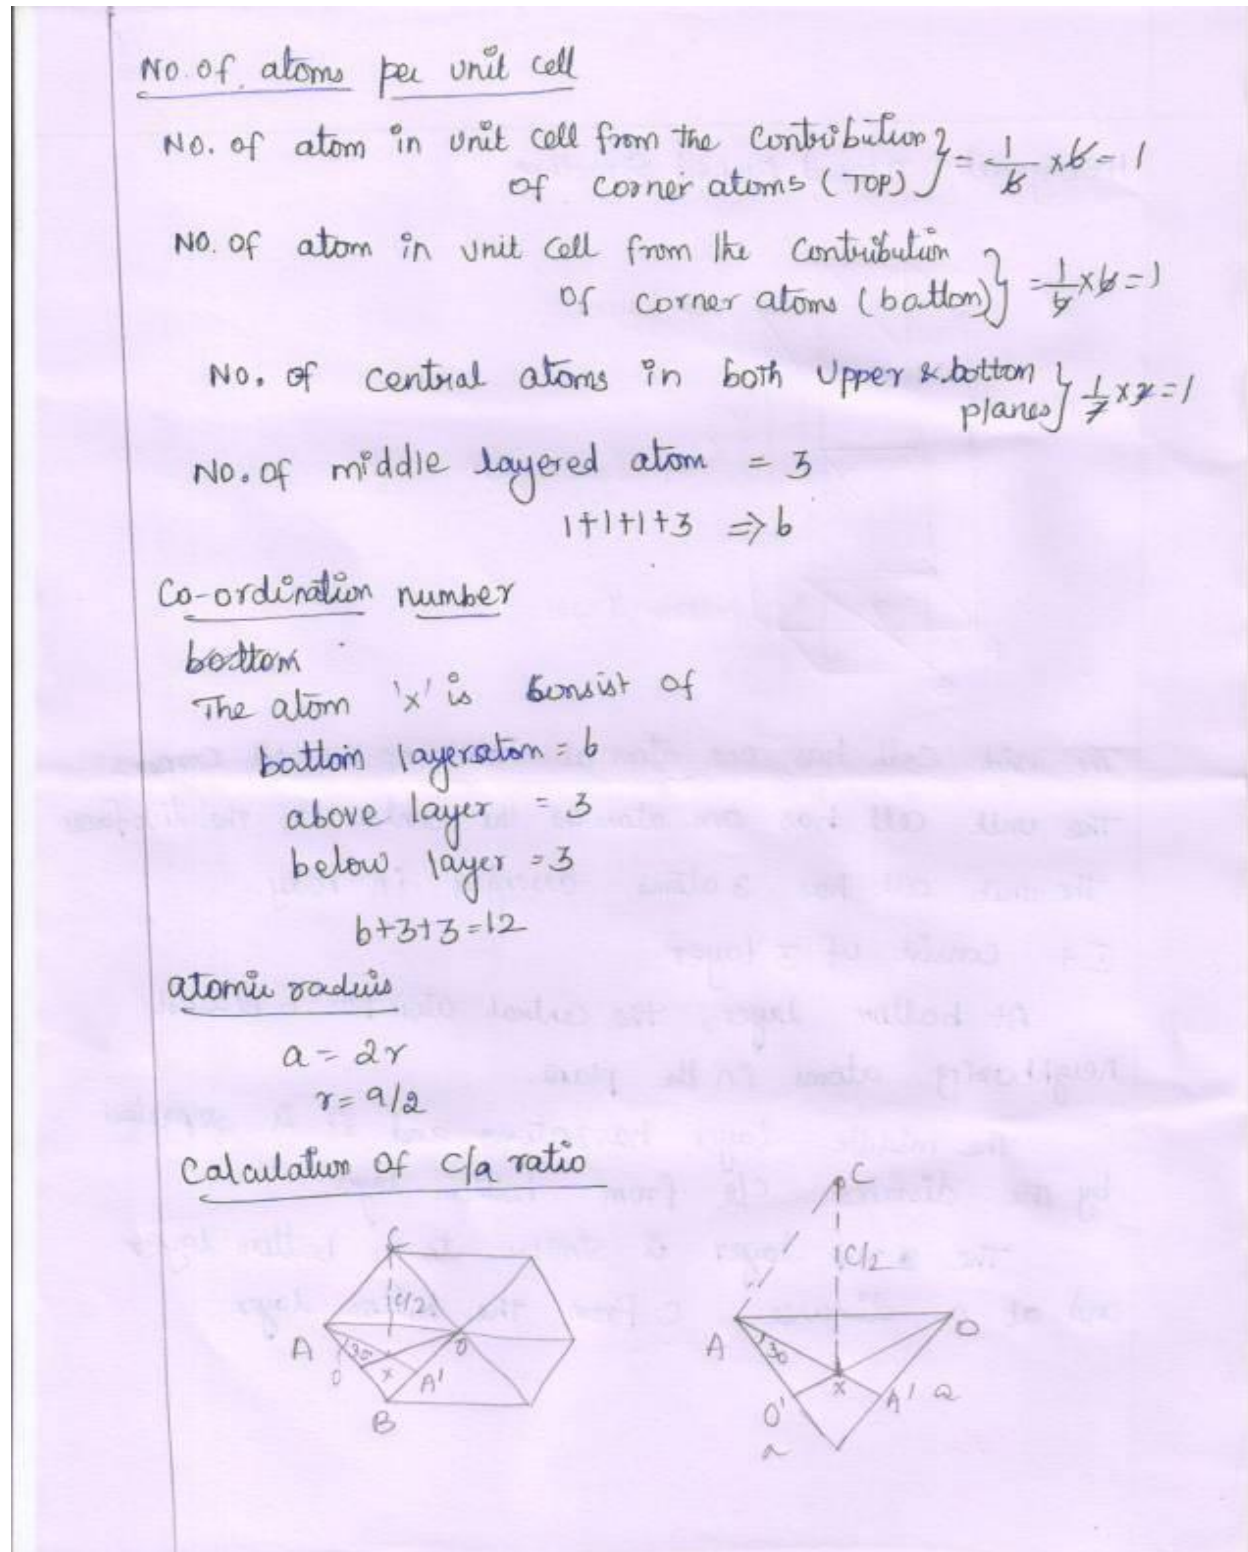 No. of atoms per unit cell
No. of atom in unit cell from the contribution
of corner atoms (TOP) } = 1/6 x 6 = 1
No. of atom in unit cell from the contribution
of corner atoms (battom) } = 1/6 x 6 = 1
No. of central atoms in both Upper & bottom
planes } 1/2 x 2 = 1
No. of middle layered atom = 3
1+1+1+3 => 6
Co-ordination number
bottom
The atom 'x' is consist of
bottom layer atom = 6
above layer = 3
below layer = 3
6+3+3=12
atomic radius
a = 2r
r = a/2
Calculation of c/a ratio
C
C/2
A
30
O
O
x
A'
B
C
C/2
A
30
O
x
O'
A' a
a